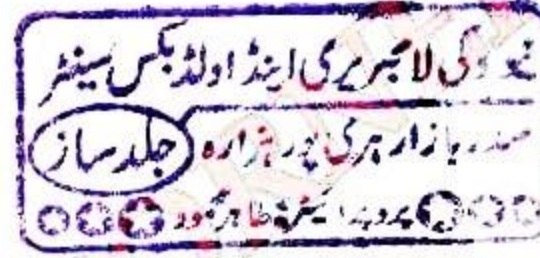 لائبریری اینڈ اولڈ بکس سینٹر
صدر بازار ہری پور ہزارہ جلد ساز
پروپرائیٹر طاہر محمود